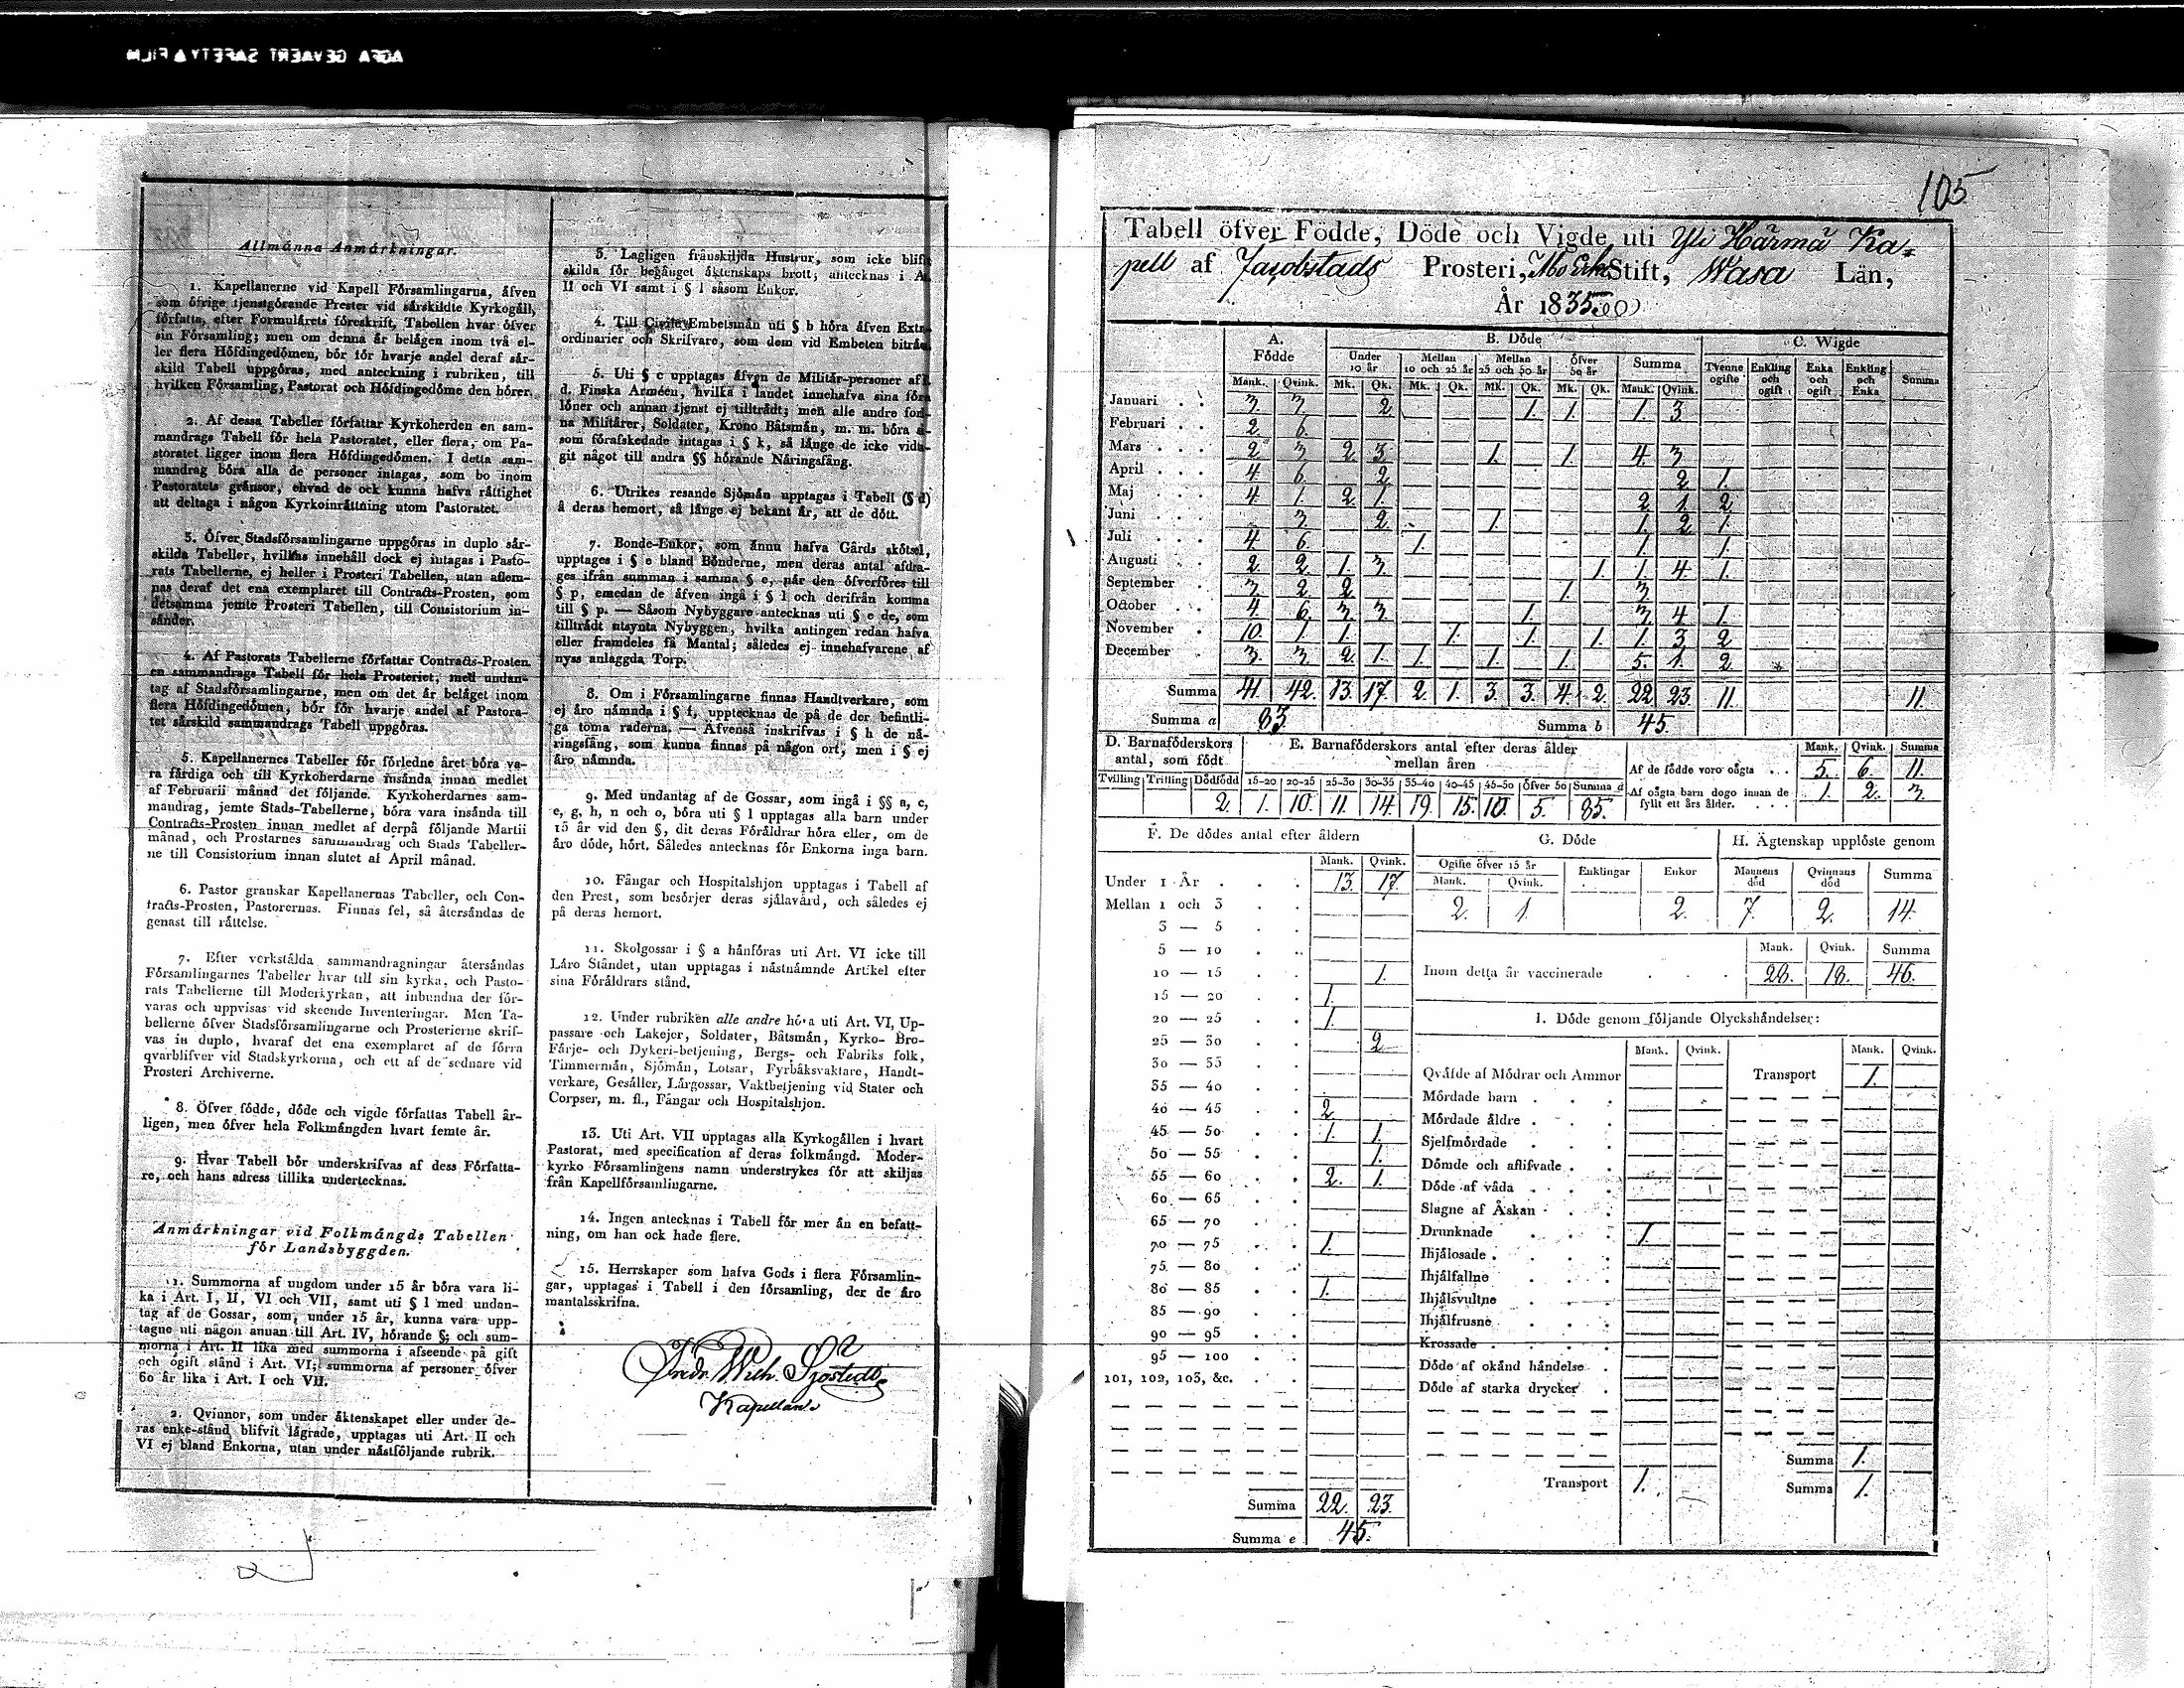 AGFA GEVAERT SAFETY ▲ FILM
Allmänna Anmärkningar.
1. Kapellanerne vid Kapell Församlingarna, äfven
som öfrige tjenstgörande Prester vid särskildte Kyrkogäll,
författa, efter Formulärets föreskrift, Tabellen hvar öfver
sin Församling; men om denna är belägen inom två el-
ler flera Höfdingedömen, bör för hvarje andel deraf sär-
skild Tabell uppgöras, med anteckning i rubriken, till
hvilken Församling, Pastorat och Höfdingedöme den hörer.
2. Af dessa Tabeller författar Kyrkoherden en sam-
mandrags Tabell för hela Pastoratet, eller flera, om Pa-
storatet ligger inom flera Höfdingedömen. I detta sam-
mandrag böra alla de personer intagas, som bo inom
Pastoratets gränsor, ehvad de ock kunna hafva rättighet
att deltaga i någon Kyrkoinrättning utom Pastoratet.
3. Öfver Stadsförsamlingarne uppgöras in duplo sär-
skilda Tabeller, hvilkas innehåll dock ej intagas i Pasto-
rats Tabellerne, ej heller i Prosteri Tabellen, utan aflem-
nas deraf det ena exemplaret till Contracts-Prosten, som
detsamma jemte Prosteri Tabellen, till Consistorium in-
sänder.
4. Af Pastorats Tabellerne författar Contracts-Prosten
en sammandrags Tabell för hela Prosteriet, med undan-
tag af Stadsförsamlingarne, men om det är beläget inom
flera Höfdingedömen, bör för hvarje andel af Pastora-
tet särskild sammandrags Tabell uppgöras.
5. Kapellanernes Tabeller för förledne året böra va-
ra färdiga och till Kyrkoherdarne insända innan medlet
af Februarii månad det följande. Kyrkoherdarnes sam-
mandrag, jemte Stads-Tabellerne, böra vara insända till
Contracts-Prosten innan medlet af derpå följande Martii
månad, och Prostarnes sammandrag och Stads Tabeller-
ne till Consistorium innan slutet af April månad.
6. Pastor granskar Kapellanernas Tabeller, och Con-
tracts-Prosten, Pastorernas. Finnas fel, så återsändas de
genast till rättelse.
7. Efter verkställda sammandragningar återsändas
Församlingarnes Tabeller hvar till sin kyrka, och Pasto-
rats Tabellerne till Moderkyrkan, att inbundna der för-
varas och uppvisas vid skeende Inventeringar. Men Ta-
bellerne öfver Stadsförsamlingarne och Prosterierne skrif-
vas in duplo, hvaraf det ena exemplaret af de förra
qvarblifver vid Stadskyrkorna, och ett af de sednare vid
Prosteri Archiverne.
8. Öfver födde, döde och vigde författas Tabell år-
ligen, men öfver hela Folkmängden hvart femte år.
9. Hvar Tabell bör underskrifvas af dess Författa-
re, och hans adress tillika undertecknas.
Anmärkningar vid Folkmängds Tabellen
för Landsbyggden.
1. Summorna af ungdom under 15 år böra vara li-
ka i Art. I, II, VI och VII, samt uti § l med undan-
tag af de Gossar, som, under 15 år, kunna vara upp-
tagne uti någon annan till Art. IV, hörande §; och sum-
morna i Art. II lika med summorna i afseende på gift
och ogift stånd i Art. VI; summorna af personer öfver
60 år lika i Art. I och VII.
2. Qvinnor, som under äktenskapet eller under de-
ras enke-stånd blifvit lägrade, upptagas uti Art. II och
VI ej bland Enkorna, utan under nästföljande rubrik.
3. Lagligen frånskiljda Hustrur, som icke blif-
skilda för begånget äktenskaps brott, antecknas i A
II och VI samt i § l såsom Enkor.
4. Till Civile Embetsmän uti § b höra äfven Extr
ordinarier och Skrifvare, som dem vid Embeten biträd
5. Uti § c upptagas äfven de Militär-personer af
d. Finska Arméen, hvilka i landet innehafva sina för
löner och annan tjenst ej tillträdt; men alle andre for
na Militärer, Soldater, Krono Båtsmän, m. m. böra
som förafskedade intagas i § k, så länge de icke vid
git något till andra §§ hörande Näringsfång.
6. Utrikes resande Sjömän upptagas i Tabell (§ d)
å deras hemort, så länge ej bekant är, att de dött.
7. Bonde-Enkor, som ännu hafva Gårds skötsel,
upptages i § e bland Bönderne, men deras antal afdra-
ges ifrån summan i samma § e, når den öfverföres till
§ p, emedan de äfven ingå i § l och derifrån komma
till § p. — Såsom Nybyggare antecknas uti § e de, som
tillträdt utsynta Nybyggen, hvilka antingen redan hafva
eller framdeles få Mantal; således ej innehafvarene af
nyss anlaggda Torp.
8. Om i Församlingarne finnas Handtverkare, som
ej äro nämnda i § f, upptecknas de på de der befintli-
ga toma raderna. — Äfvenså inskrifvas i § h de nä-
ringsfång, som kunna finnas på någon ort, men i § ej
äro nämnda.
9. Med undantag af de Gossar, som ingå i §§ a, c,
e, g, h, n och o, böra uti § l upptagas alla barn under
15 år vid den §, dit deras Föräldrar höra eller, om de
äro döde, hört. Således antecknas för Enkorna inga barn.
10. Fångar och Hospitalshjon upptagas i Tabell af
den Prest, som besörjer deras själavård, och således ej
på deras hemort.
11. Skolgossar i § a hänföras uti Art. VI icke till
Läro Ståndet, utan upptagas i nästnämnde Artikel efter
sina Föräldrars stånd.
12. Under rubriken alle andre höra uti Art. VI, Up-
passare och Lakejer, Soldater, Båtsmän, Kyrko- Bro-
Färje- och Dykeri-betjening, Bergs- och Fabriks folk,
Timmermän, Sjömän, Lotsar, Fyrbåksvaktare, Handt-
verkare, Gesäller, Lärgossar, Vaktbetjening vid Stater och
Corpser, m. fl., Fångar och Hospitalshjon.
13. Uti Art. VII upptagas alla Kyrkogällen i hvart
Pastorat, med specification af deras folkmängd. Moder-
kyrko Församlingens namn understrykes för att skiljas
från Kapellförsamlingarne.
14. Ingen antecknas i Tabell för mer än en befatt-
ning, om han ock hade flere.
15. Herrskaper som hafva Gods i flera Församlin-
gar, upptagas i Tabell i den församling, der de äro
mantalsskrifna.
Fredr. Wilh. Sjöstedt
Kapellan
105
Tabell öfver Födde, Döde och Vigde uti Yli Härmä Ka-
pell af Jacobstads Prosteri, Åbo Erke Stift, Wasa Län,
År 1835
A. Födde B. Döde C. Wigde
Under 10 år Mellan 10 och 25 år Mellan 25 och 50 år Öfver 50 år Summa Tvenne ogifte Enkling och ogift Enka och ogift Enkling och Enka Summa
Mank. Qvink. Mk. Qk. Mk. Qk. Mk. Qk. Mk. Qk. Mank. Qvink.
Januari 3. 7. 2 1. 1. 1. 3
Februari 2. 6.
Mars 2 3 2 3 1. 1. 4. 3
April 4 6. 2 2 1.
Maj 4 1. 2 1. 2 1. 2
Juni 3. 2 1. 1. 2 1.
Juli 4. 6. 1. 1. 1.
Augusti 2 2 1. 3. 1. 1. 4. 1.
September 3 2 2 1. 3
October 4 6. 3 3 1. 3 4 1.
November 10. 1. 1. 1. 1. 1. 1. 3 2
December 3. 3. 2 1. 1. 1. 1. 5. 1. 2
Summa 41. 42. 13. 17. 2. 1. 3. 3. 4. 2. 22. 23. 11. 11.
Summa a 83 Summa b 45.
D. Barnaföderskors antal, som födt
Tvilling Trilling Dödfödd
2.
E. Barnaföderskors antal efter deras ålder
mellan åren
15-20 20-25 25-30 30-35 35-40 40-45 45-50 Öfver 50 Summa d
1. 10. 11. 14. 19. 15. 10. 5. 85.
Mank. Qvink. Summa
Af de födde voro oägta . . . 5. 6. 11.
Af oägta barn dogo innan de
fyllt ett års ålder. 1. 2. 3.
F. De dödes antal efter åldern
Mank. Qvink.
Under 1 År 13. 17.
Mellan 1 och 3
3 — 5
5 — 10
10 — 15 1.
15 — 20 1.
20 — 25 1.
25 — 30 2
30 — 35
35 — 40
40 — 45 2
45 — 50 1. 1.
50 — 55 1.
55 — 60 2. 1.
60 — 65
65 — 70
70 — 75 1.
75 — 80
80 — 85 1.
85 — 90
90 — 95
95 — 100
101, 102, 103, &c.
Summa 22. 23.
Summa e 45.
G. Döde
Ogifte öfver 15 år Enklingar Enkor
Mank. Qvink.
2. 1. 2.
H. Ägtenskap upplöste genom
Mannens död Qvinnans död Summa
7. 2. 14.
Mank. Qvink. Summa
Inom detta år vaccinerade 28. 18. 46.
I. Döde genom följande Olyckshändelser:
Mank. Qvink. Mank. Qvink.
Qväfde af Mödrar och Ammor Transport 1.
Mördade barn
Mördade äldre
Sjelfmördade
Dömde och aflifvade
Döde af våda
Slagne af Åskan
Drunknade 1.
Ihjälosade
Ihjälfallne
Ihjälsvultne
Ihjälfrusne
Krossade
Döde af okänd händelse
Döde af starka drycker
Summa 1.
Transport 1. Summa 1.